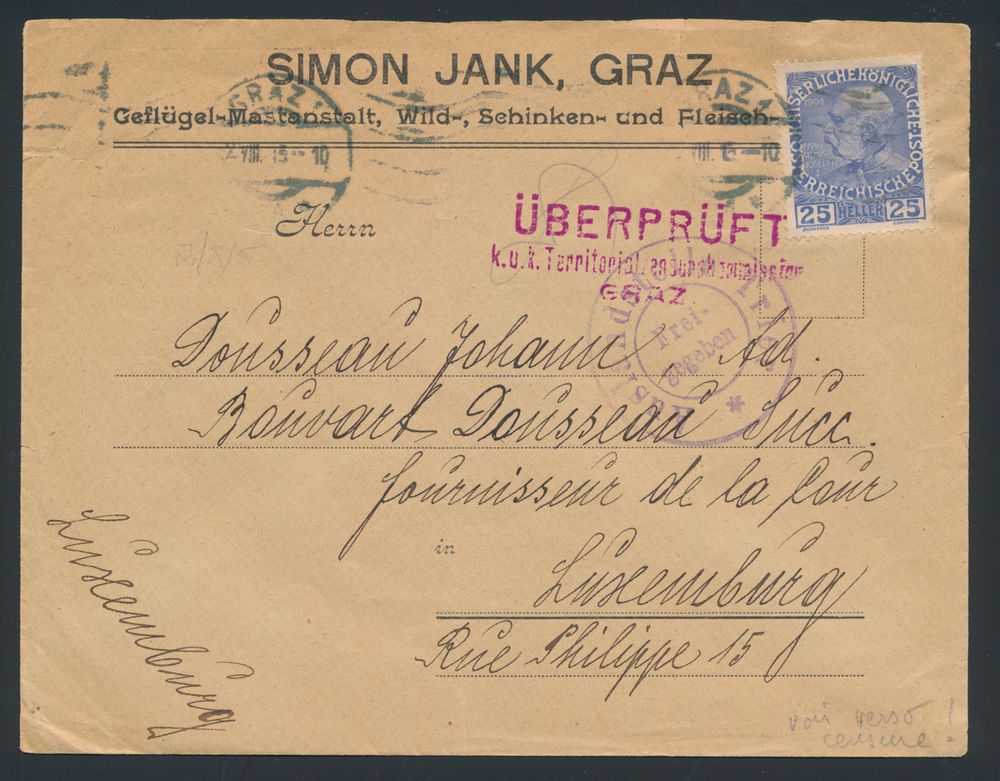 SIMON JANK, GRAZ
Geflügel-Mastanstalt, Wild-, Schinken- und Fleisch-
GRAZ 1
VIII. 15 - 10
GRAZ 1
VIII. 15 - 10
KAISERLICHE KÖNIGLICHE ÖSTERREICHISCHE POST
1908
25 HELLER 25
Herrn
2/8/5
ÜBERPRÜFT
k.u.k. Territorialzensurkommission
GRAZ.
Auslandstelle Trier
Frei-
gegeben
Dousseau Johann Ad.
Bouvart Dousseau Succ.
fournisseur de la Cour
in
Luxemburg
Rue Philippe 15
Luxemburg
voir verso !
censure